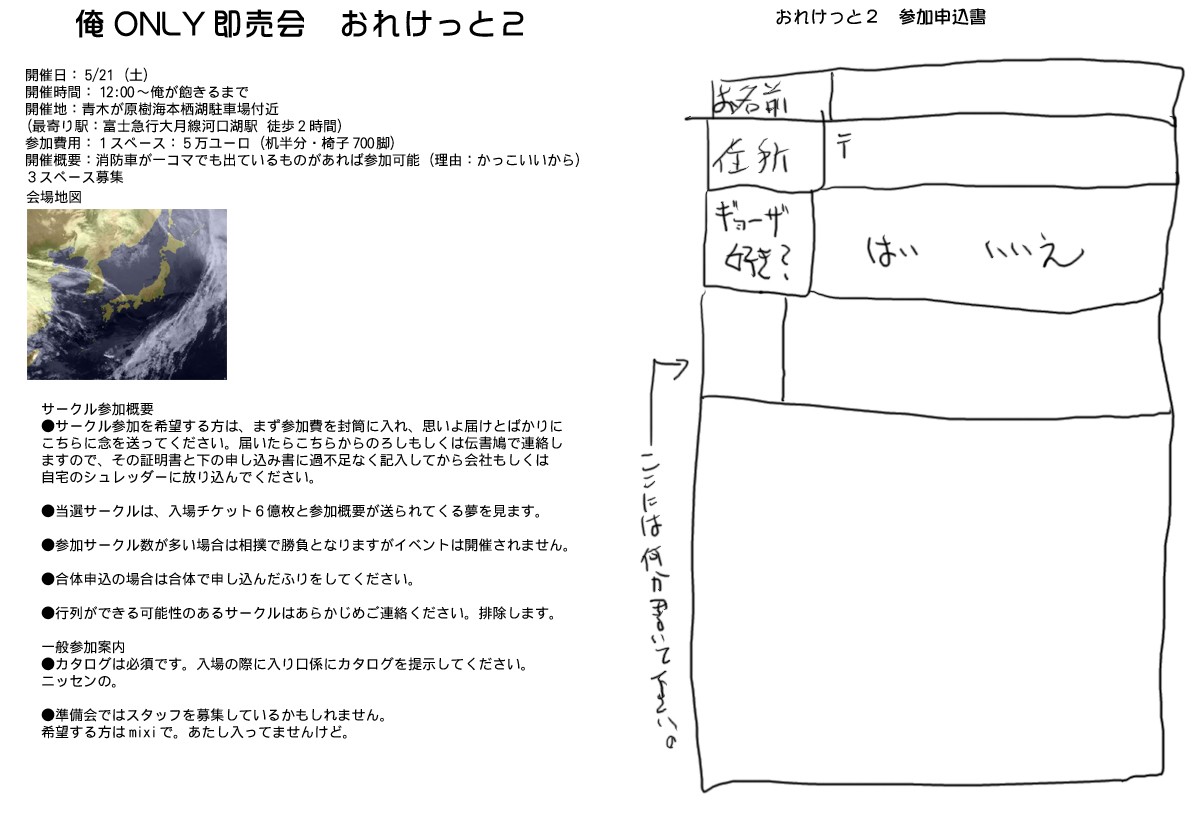 俺ONLY即売会　おれけっと２
開催日：5/21（土）
開催時間：12:00～俺が飽きるまで
開催地：青木が原樹海本栖湖駐車場付近
(最寄り駅：富士急行大月線河口湖駅 徒歩２時間)
参加費用：１スペース：５万ユーロ（机半分・椅子700脚）
開催概要：消防車が一コマでも出ているものがあれば参加可能（理由：かっこいいから）
３スペース募集
会場地図
サークル参加概要
●サークル参加を希望する方は、まず参加費を封筒に入れ、思いよ届けとばかりに
こちらに念を送ってください。届いたらこちらからのろしもしくは伝書鳩で連絡し
ますので、その証明書と下の申し込み書に過不足なく記入してから会社もしくは
自宅のシュレッダーに放り込んでください。
●当選サークルは、入場チケット６億枚と参加概要が送られてくる夢を見ます。
●参加サークル数が多い場合は相撲で勝負となりますがイベントは開催されません。
●合体申込の場合は合体で申し込んだふりをしてください。
●行列ができる可能性のあるサークルはあらかじめご連絡ください。排除します。
一般参加案内
●カタログは必須です。入場の際に入り口係にカタログを提示してください。
ニッセンの。
●準備会ではスタッフを募集しているかもしれません。
希望する方はmixiで。あたし入ってませんけど。
おれけっと２　参加申込書
お名前
住所
〒
ギョーザ
好き？
はい　いいえ
ここには何か書いて下さい。